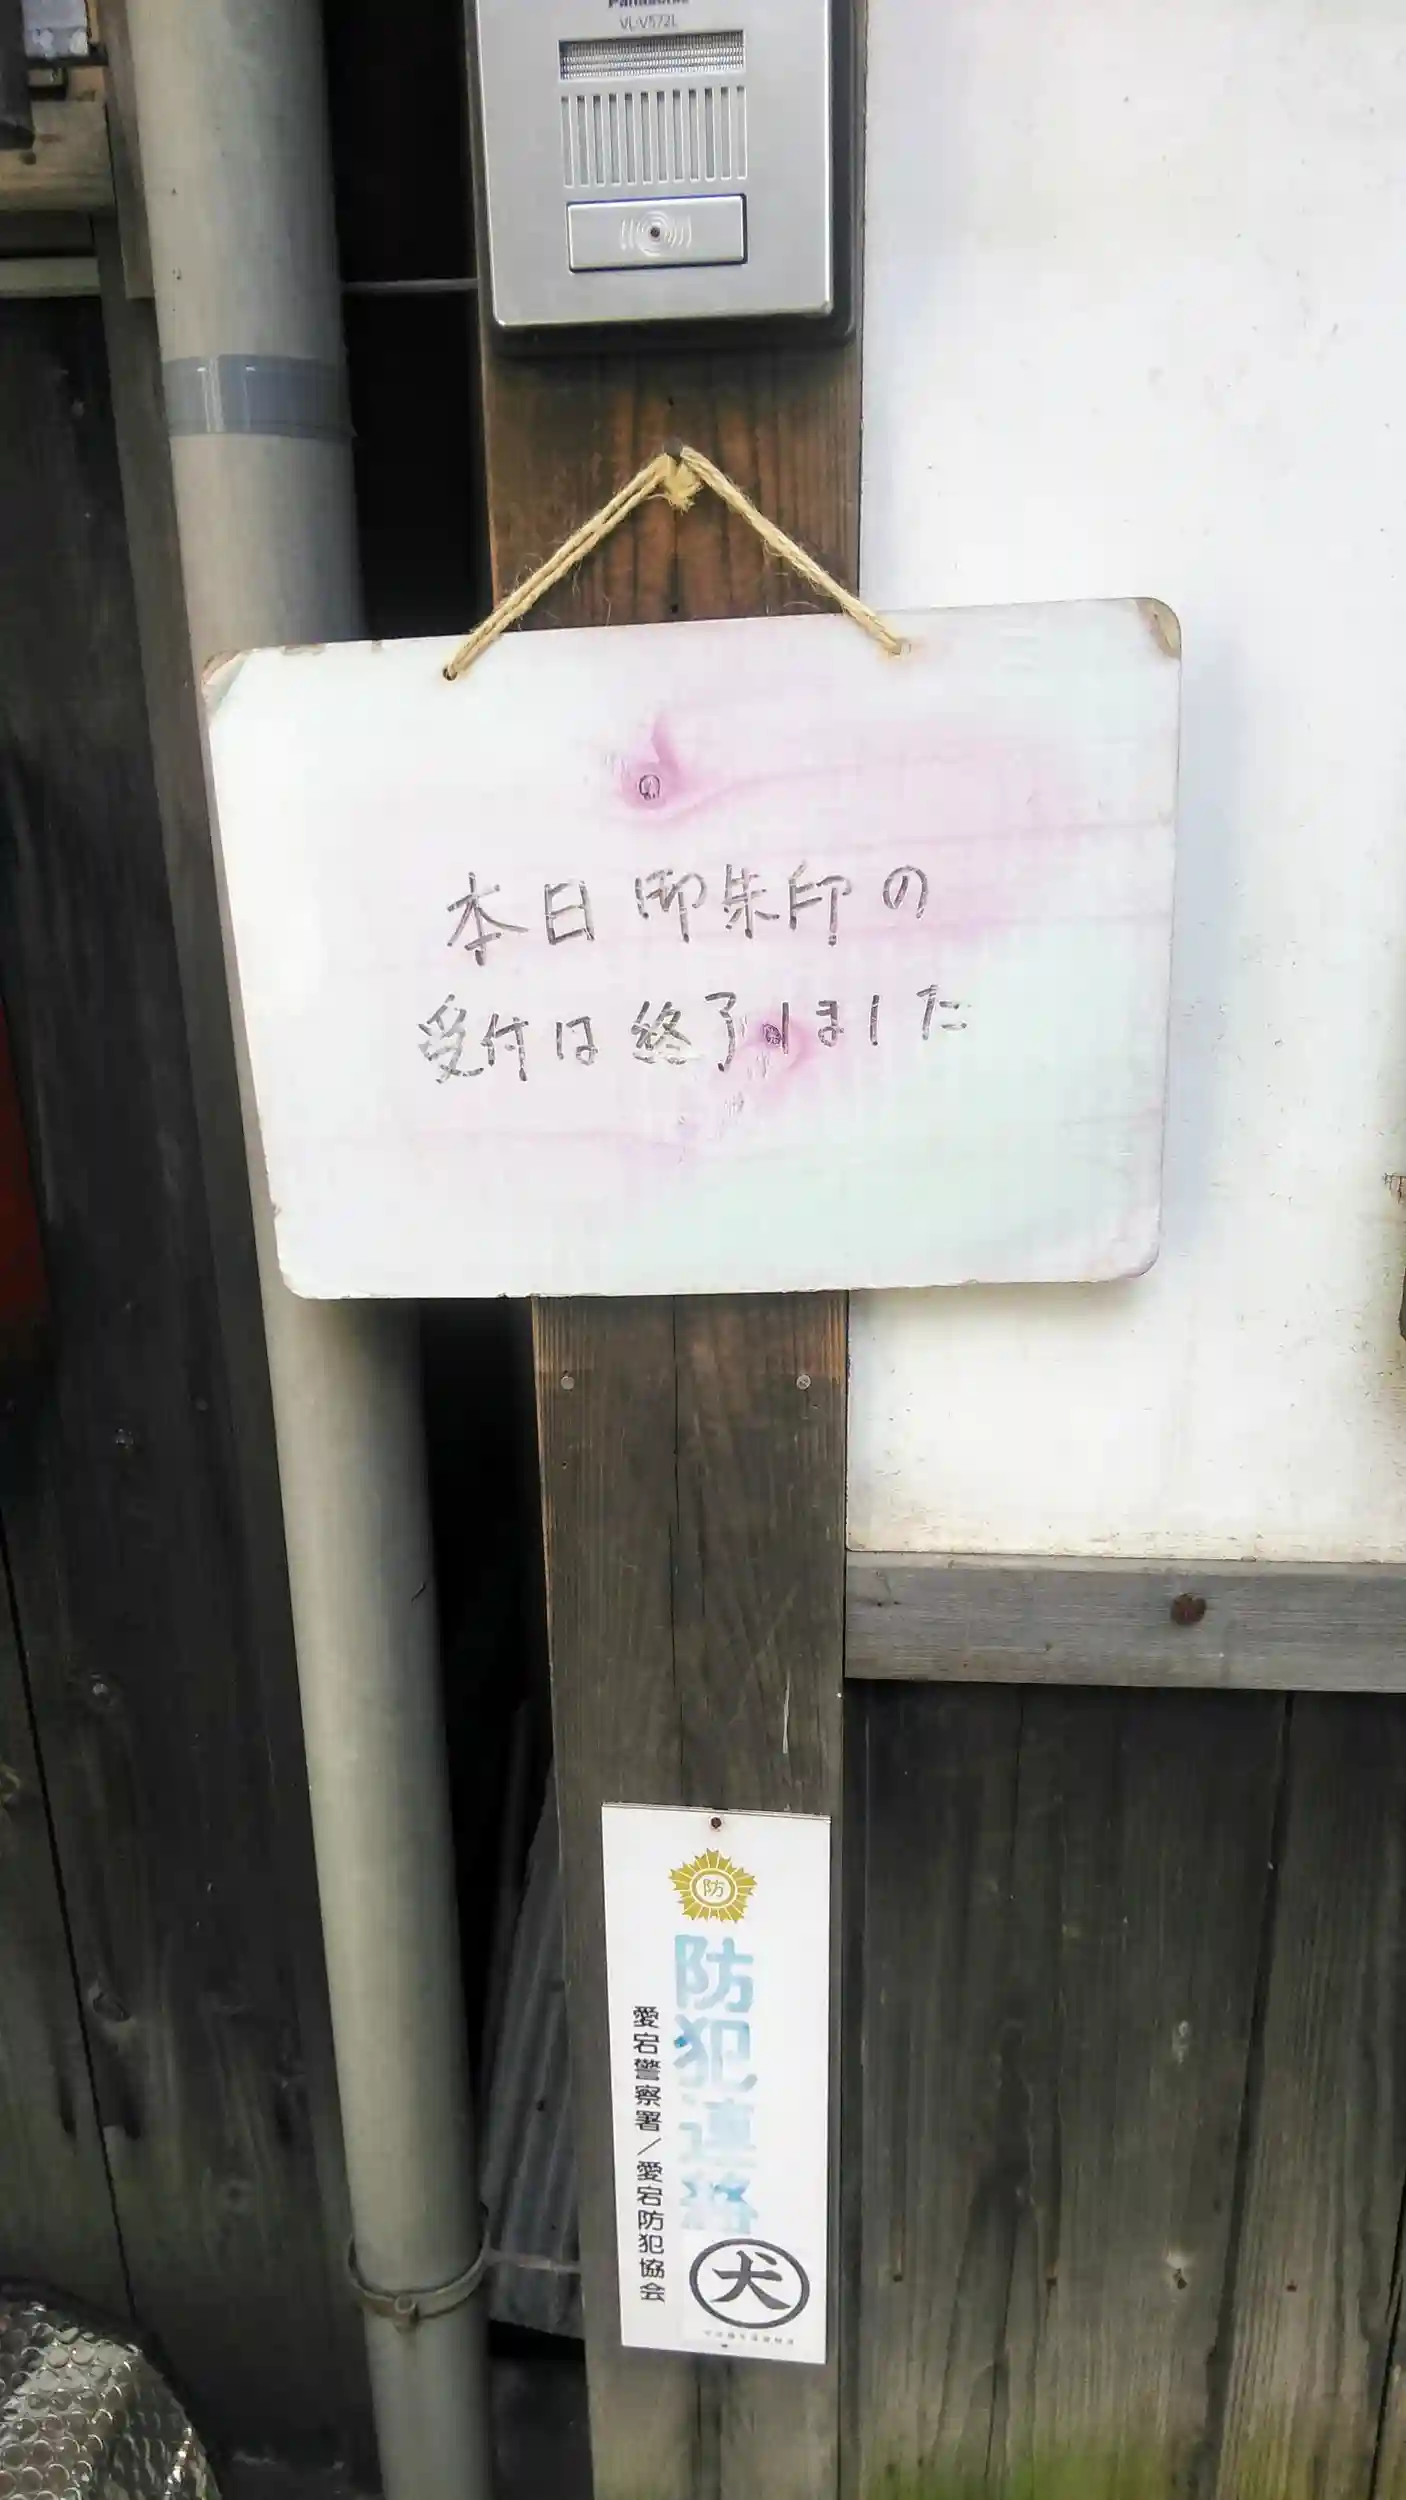 Panasonic
VL-V572L
本日御朱印の
受付は終了しました
防
防犯連絡
愛宕警察署/愛宕防犯協会
犬